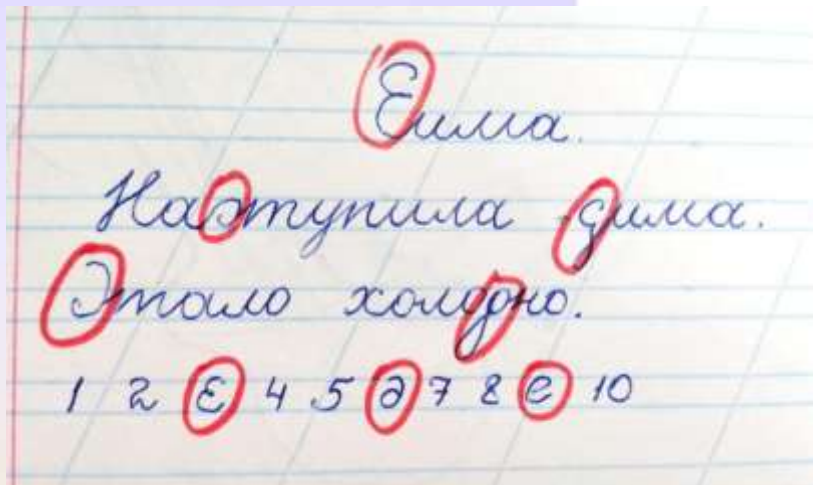 Еима.
Наэтупила дима.
Этало холодно.
1 2 Ɛ 4 5 ∂ 7 8 e 10